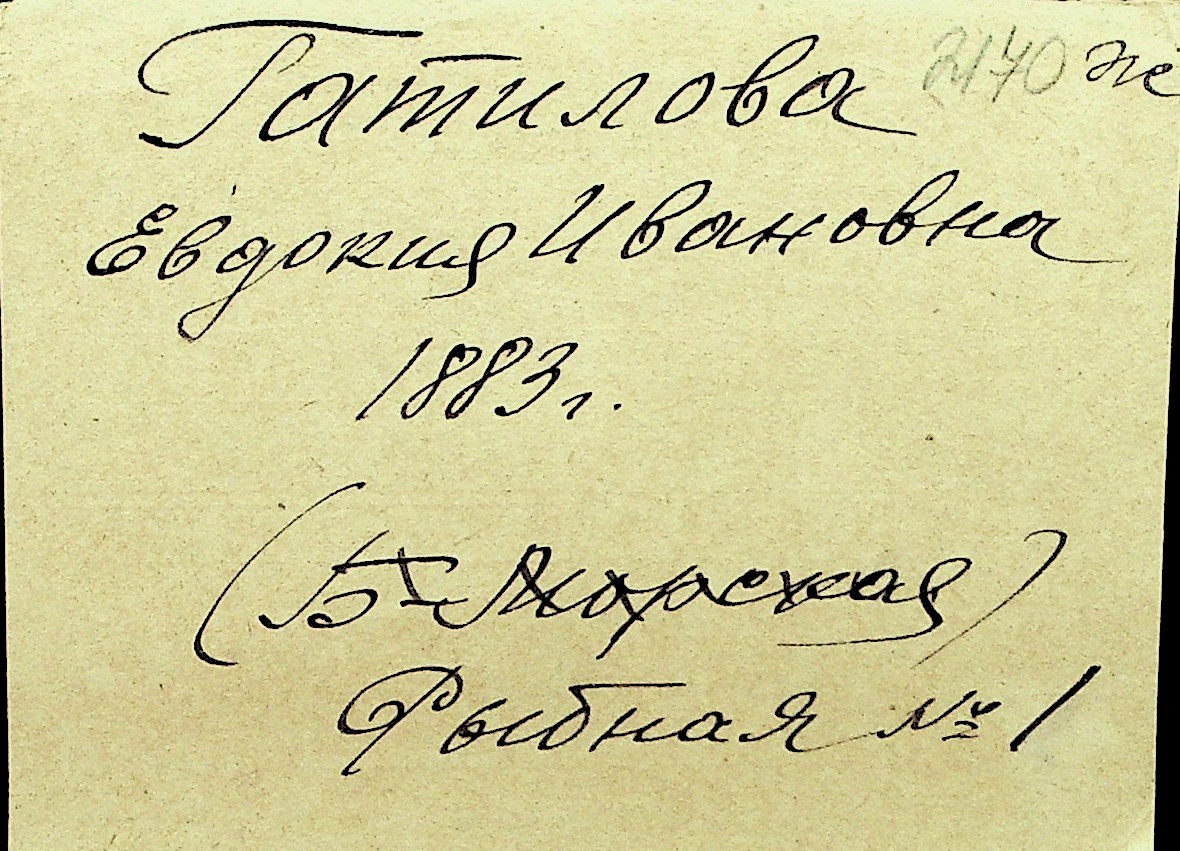 Гатилова 2170 не
Евдокия Ивановна
1883 г.
(Б-Морская)
Рыбная № 1